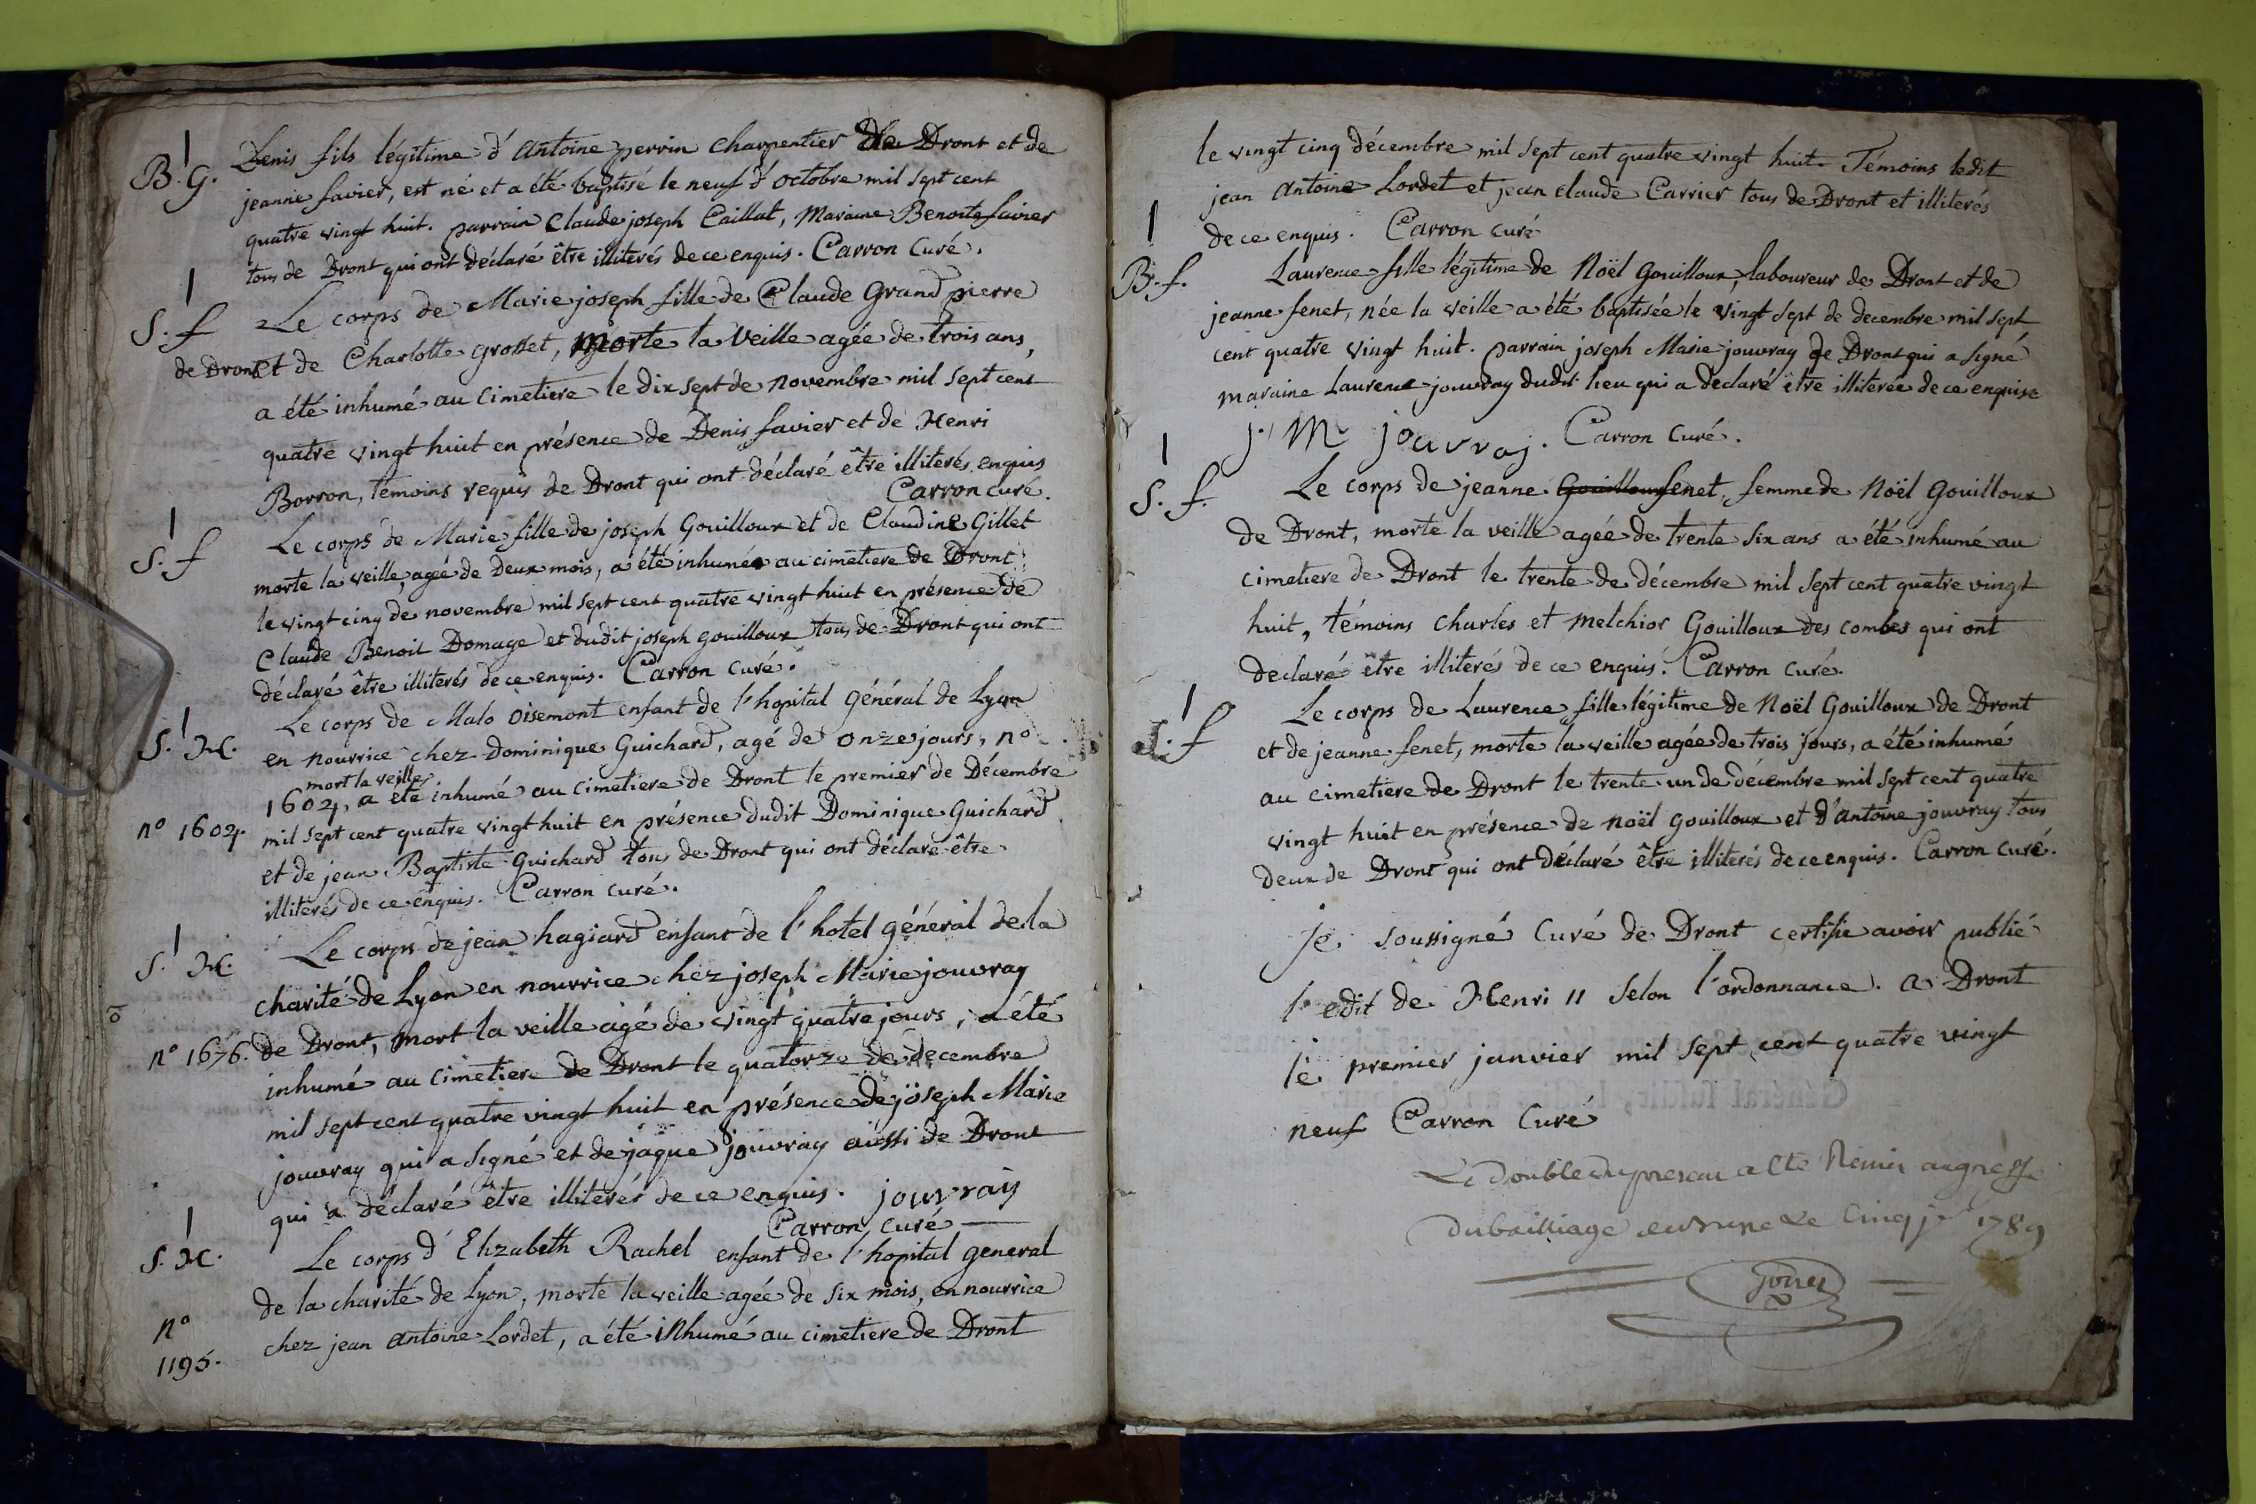 B. G.
Denis fils légitime d'Antoine perrin Charpentier de Dront et de
jeanne favier, est né et a été baptisé le neuf d'octobre mil sept cent
quatre vingt huit. parrain Claude joseph Caillat, Maraine Benoite favier
tous de Dront qui ont déclaré être illiterés de ce enquis. Carron Curé.
S. f
Le corps de Marie joseph fille de Claude Grand pierre
de Dront et de Charlotte Grosset, morte la veille agée de trois ans,
a été inhumé au Cimetiere le dix sept de novembre mil sept cent
quatre vingt huit en présence de Denis favier et de Henri
Borron, témoins requis de Dront qui ont déclaré être illiterés enquis
Carron curé.
S. f
Le corps de Marie fille de joseph Gouilloux et de Claudine Gillet
morte la veille, agée de Deux mois, a été inhumée au cimetiere de Dront
le vingt cinq de novembre mil sept cent quatre vingt huit en présence de
Claude Benoit Domage et dudit joseph gouilloux tous de Dront qui ont
déclaré être illiterés de ce enquis. Carron curé.
S. M.
Le corps de Malo Oisemont enfant de l'hopital Général de Lyon
en nourrice chez Dominique Guichard, agé de onze jours, n°
mort la veille
n° 1604.
1604, a été inhumé au cimetiere de Dront le premier de Décembre
mil sept cent quatre vingt huit en présence dudit Dominique Guichard
et de jean Baptiste Guichard tous de Dront qui ont déclaré être
illiterés de ce enquis. Carron curé.
S. M.
Le corps de jean hagiard enfant de l'hotel général de la
charité de Lyon en nourrice chez joseph Marie jouvray
n° 1676.
de Dront, mort la veille agé de vingt quatre jours, a été
inhumé au cimetiere de Dront le quatorze de decembre
mil sept cent quatre vingt huit en présence de joseph Marie
jouvray qui a signé et de jaque jouvray aussi de Dront
qui a déclaré être illiterés de ce enquis. jouvray
Carron curé
S. M.
Le corps d'Elizabeth Rachel enfant de l'hopital general
de la charité de Lyon, morte la veille agée de six mois, en nourrice
n°
1195.
chez jean antoine Lordet, a été inhumé au cimetiere de Dront
le vingt cinq décembre mil sept cent quatre vingt huit. Témoins ledit
jean Antoine Lordet et jean claude Carrier tous de Dront et illiterés
de ce enquis. Carron curé
B. f.
Laurence fille légitime de Noël Gouilloux, laboureur de Dront et de
jeanne fenet, née la veille a été baptisée le vingt sept de decembre mil sept
cent quatre vingt huit. parrain joseph Marie jouvray de Dront qui a signé
maraine Laurence jouvray dudit lieu qui a declaré être illiterée de ce enquise
j. M. jouvray. Carron Curé.
S. f.
Le corps de jeanne Gouilloux fenet, femme de Noël Gouilloux
de Dront, morte la veille agée de trente six ans a été inhumé au
cimetiere de Dront le trente de décembre mil sept cent quatre vingt
huit, témoins Charles et Melchior Gouilloux des combes qui ont
declaré être illiterés de ce enquis. Carron curé.
S. f
Le corps de Laurence fille légitime de Noël Gouilloux de Dront
et de jeanne fenet, morte la veille agée de trois jours, a été inhumé
au cimetiere de Dront le trente un de décembre mil sept cent quatre
vingt huit en présence de noël gouilloux et d'antoine jouvray tous
deux de Dront qui ont déclaré être illiterés de ce enquis. Carron curé.
je soussigné Curé de Dront certifie avoir publié
l'edit de Henri II selon l'ordonnance. a Dront
le premier janvier mil sept cent quatre vingt
neuf Carron Curé
Le double du present a été Remis au greffe
du bailliage le Cinq jr 1789